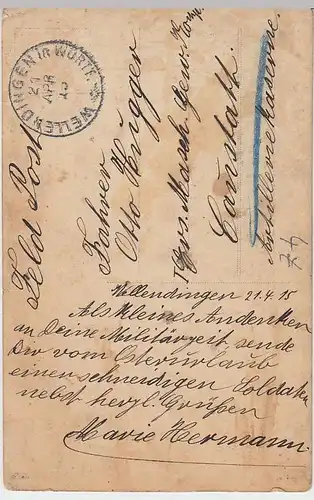 WELLENDINGEN in WÜRTT.
21 APR 15
Feld Post
Fahrer
Otto Hugger
Ers. Masch. Gew. Komp.
Canstatt.
Artilleriekaserne.
Wellendingen 21.4.15
Als kleines Andenken
an Deine Militärzeit sende
Dir vom Osterurlaub
einer schneidigen Soldaten
nebst herzl. Grüßen
Marie Hermann.